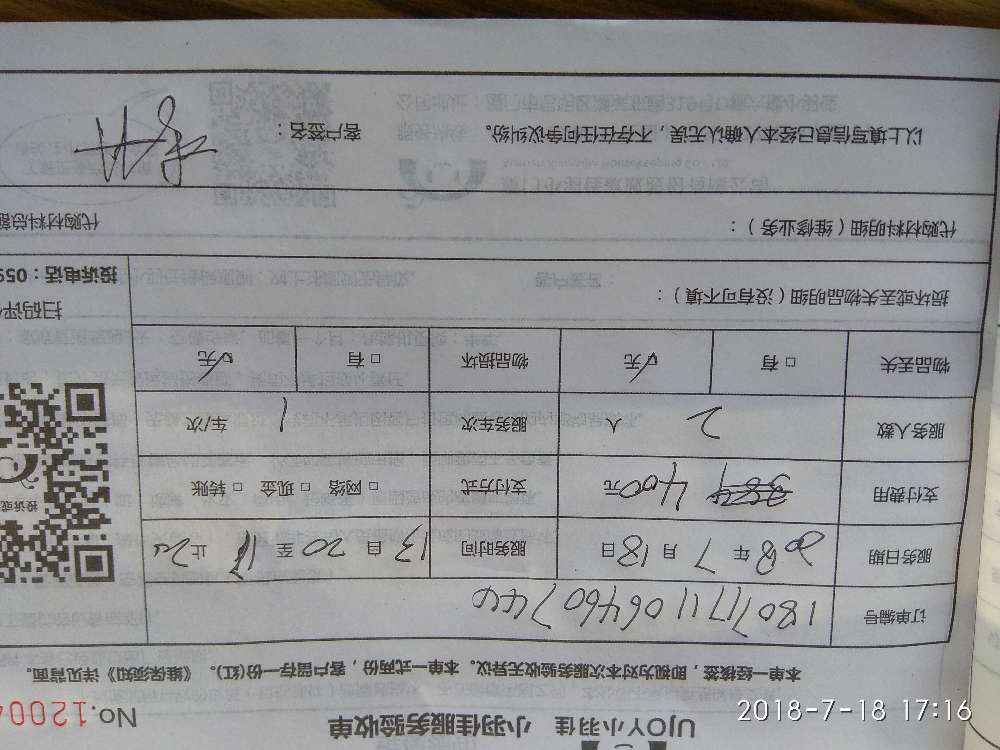 UJOY小羽佳 小羽佳服务验收单
No.12004
本单一经核签，即视为对本次服务验收无异议。本单一式两份，客户留存一份(红)。《维保须知》详见背面。
订单编号
服务日期 2018年7月18日 服务时间 13自20至 止20
支付费用 400元 支付方式 □网络 □现金 □转账
服务人数 2人 服务车次 1车/次
物品丢失 □有 无 物品损坏 □有 无
损坏或丢失物品明细（没有可不填）：
投诉电话：059
代购材料明细（维修业务）：
代购材料总额
以上填写信息已经本人确认无误，不存在任何争议纠纷。 客户签名：
2018-7-18 17:16